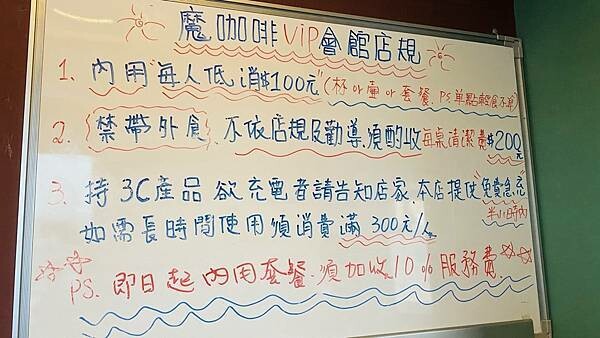 魔咖啡VIP會館店規
1. 內用"每人低消$100元"(杯or壺or套餐, PS.單點輕食不算)
2. {禁帶外食}、不依店規及勸導,須酌收每桌清潔費$200元
3. 持3C產品 欲充電者請告知店家,本店提供"免費急充"半小時內
如需長時間使用須消費滿 300元/人
PS. 即日起內用套餐,須加收10%服務費.